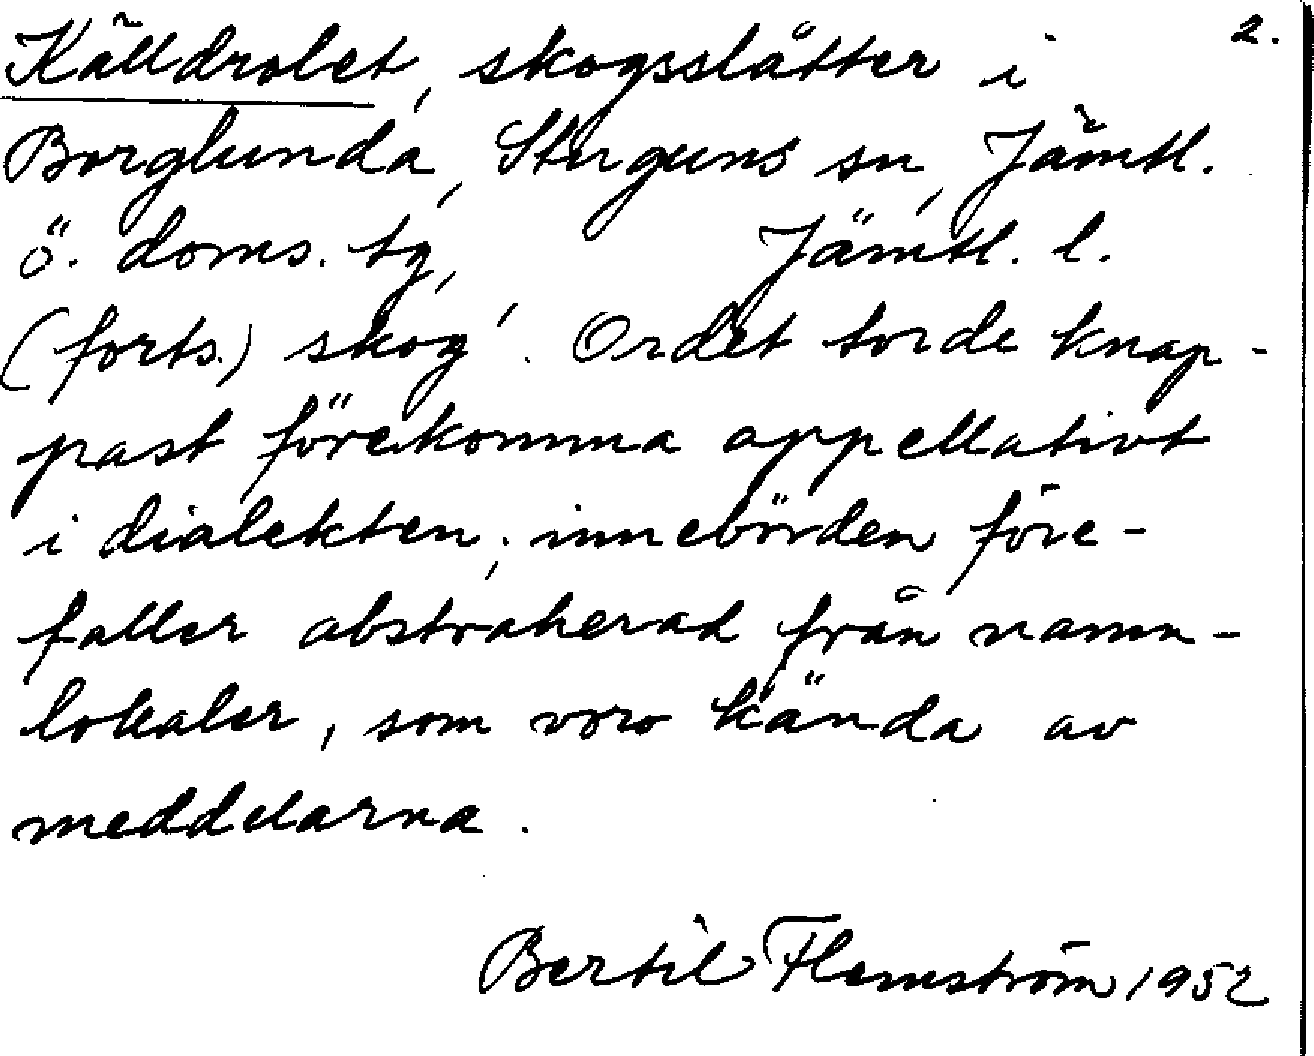 2.
Källdrolet, skogsslåtter i
Borglunda, Stuguns sn, Jämtl.
ö. doms. tg, Jämtl. l.
(forts.) skog'. Ordet torde knap-
past förekomma appellativt
i dialekten; innebörden före-
faller abstraherad från namn-
lokaler, som voro kända av
meddelarna.
Bertil Flemström 1952